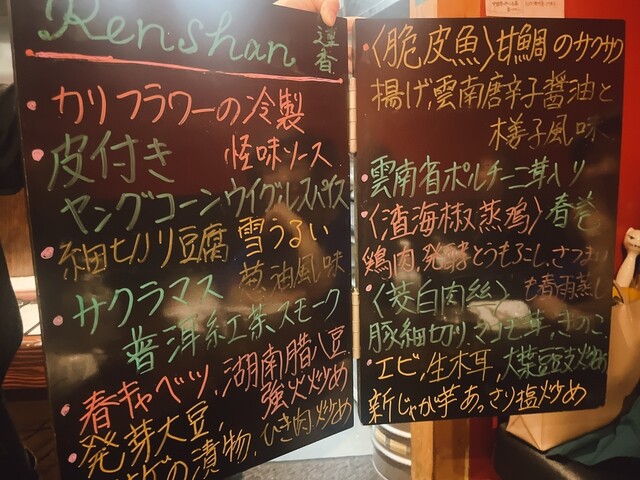 Renshan 蓮香
・カリフラワーの冷製
怪味ソース
・皮付き
ヤングコーンウイグルスパイス
・細切り豆腐 雪うるい
葱油風味
・サクラマス
普洱紅茶スモーク
・春キャベツ、湖南腊八豆
強火炒め
・発芽大豆、
の漬物、ひき肉炒め
・〈脆皮魚〉甘鯛のサクサク
揚げ、雲南唐辛子醤油と
木姜子風味
・雲南省ポルチーニ茸入り
春巻
・〈渣海椒蒸鸡〉
鶏肉、発酵とうもろこし、さつまい
も春雨蒸し
・〈茭白肉絲〉
豚細切り、マコモ茸、きのこ
・エビ、生木耳、大葉豆豉炒め
・新じゃが芋あっさり塩炒め